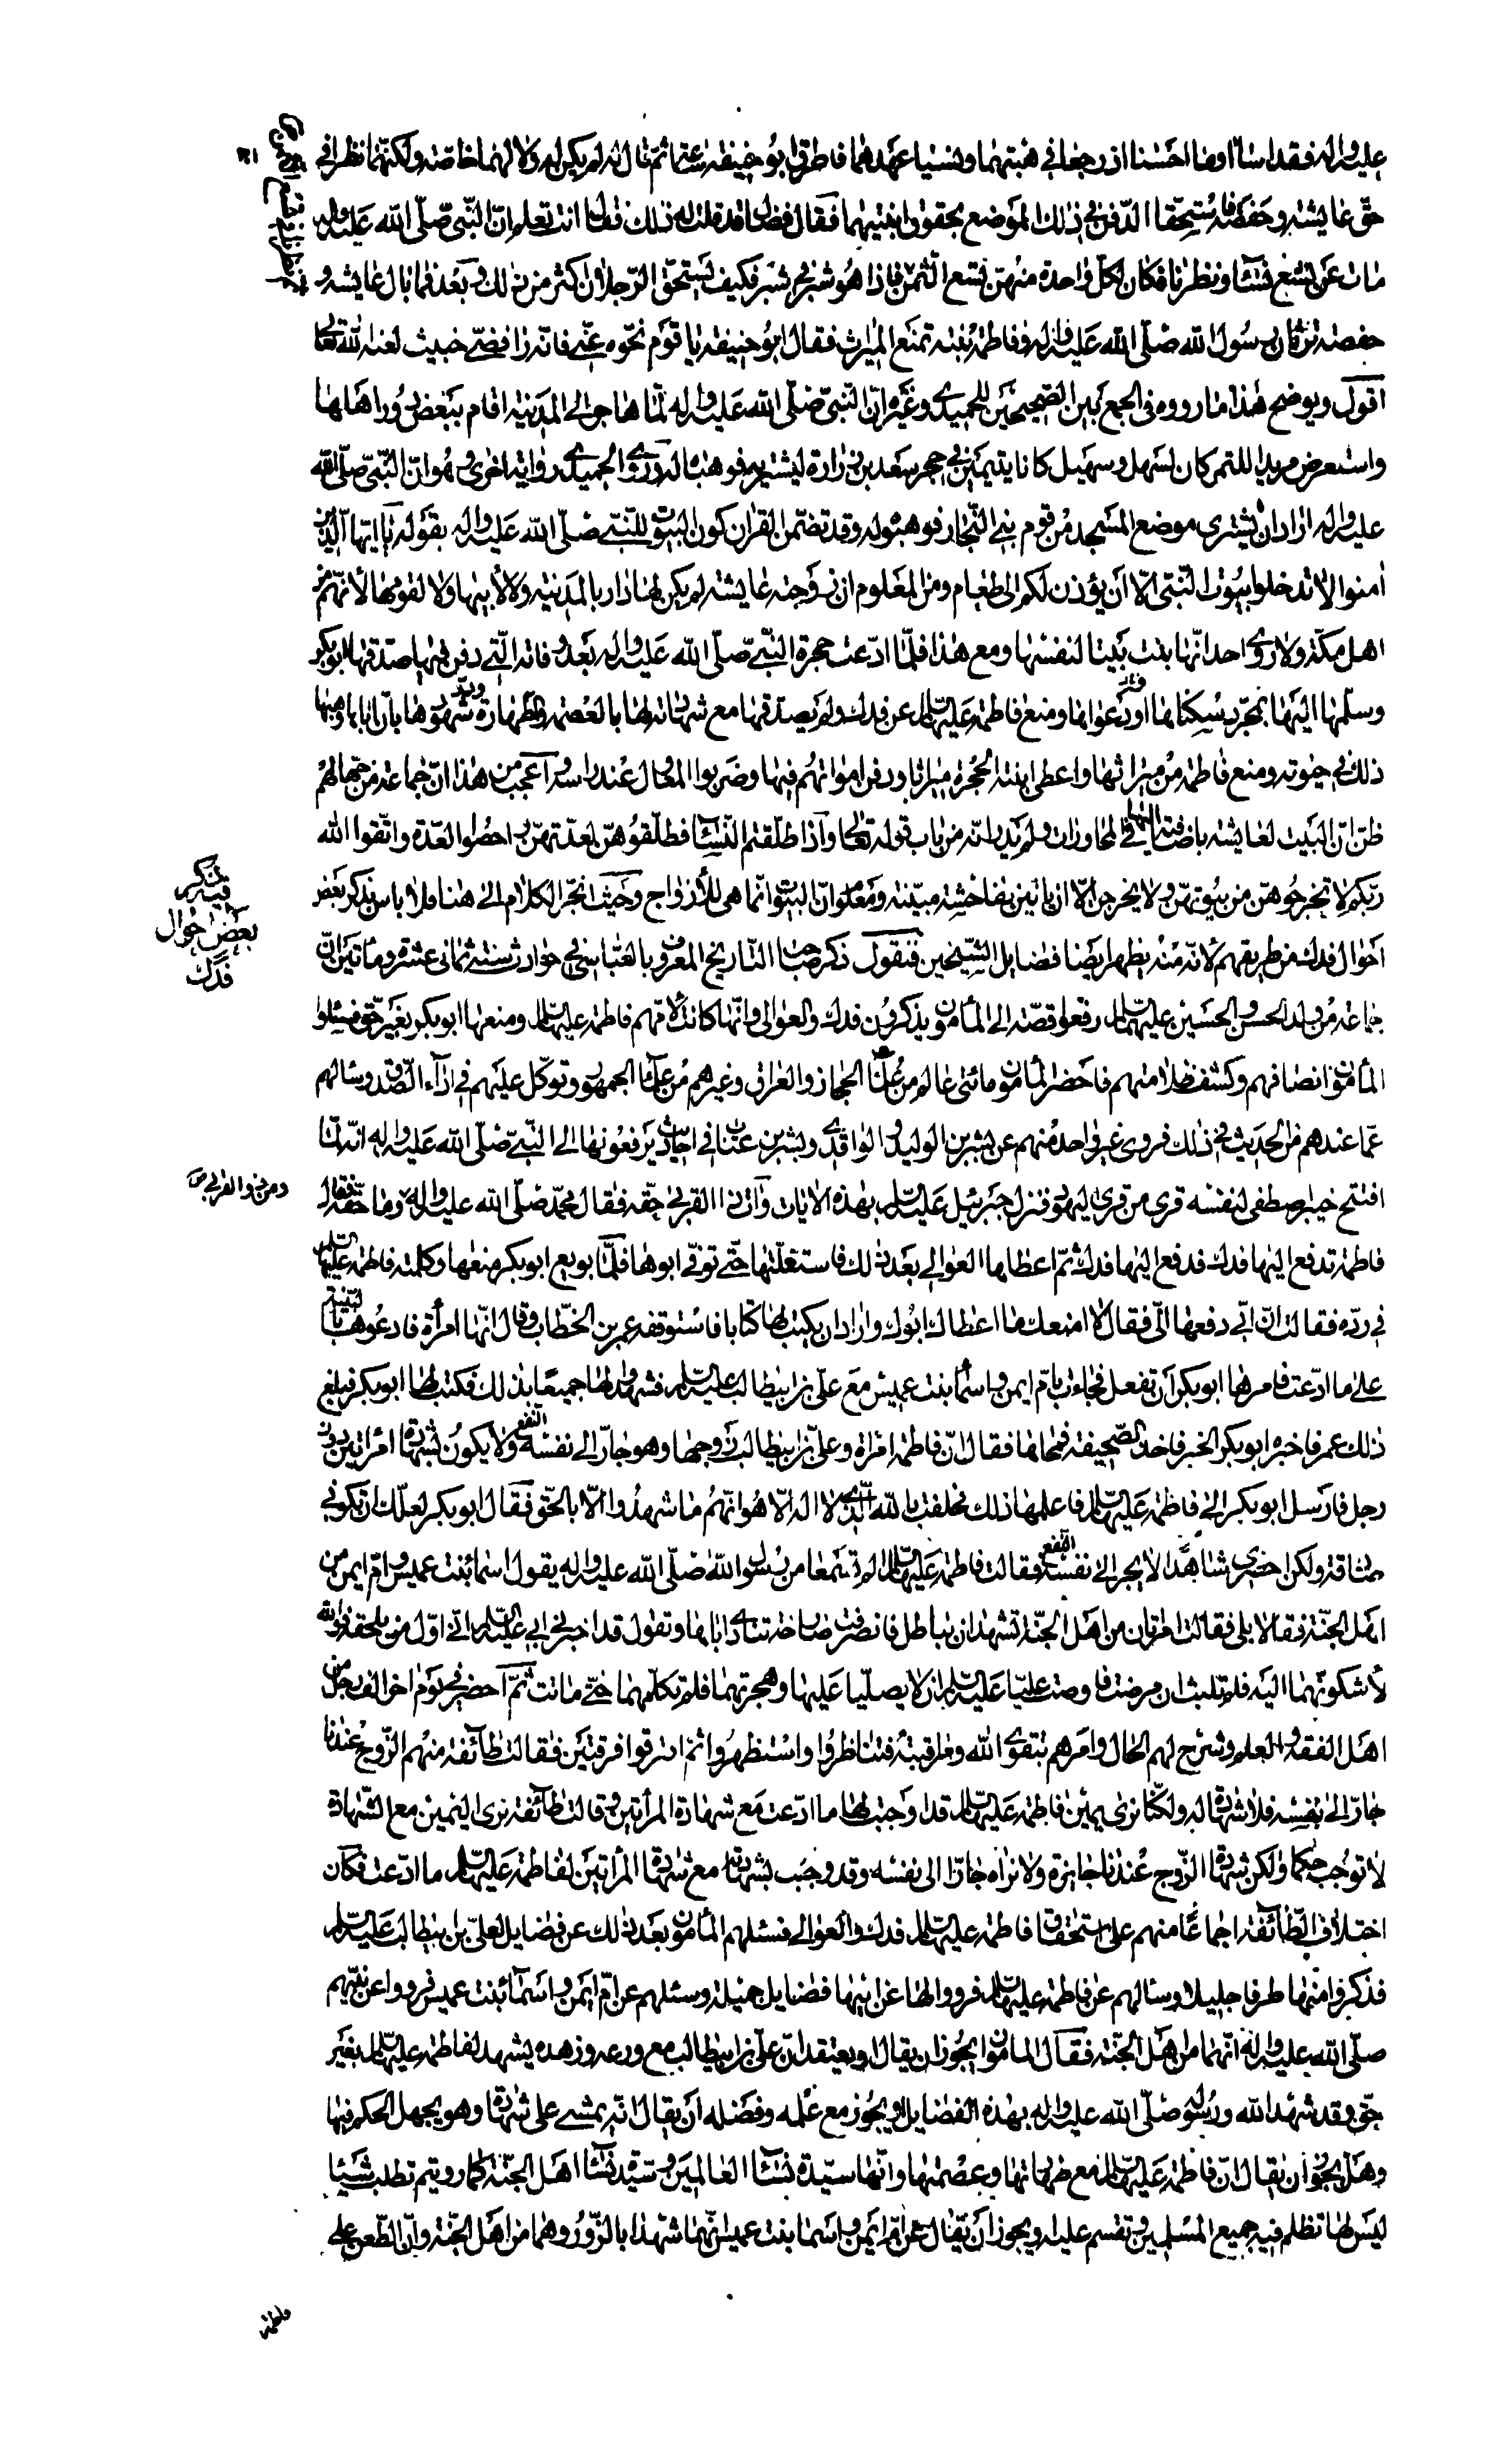 عليه واله فقد اساا وما احسنا اذ رجعا في هبتهما ونسيا عهدهما فاطرق ابو حنيفة ساعة ثم قال له لم يكن له ولا لهما خاصة ولكنهما نظرا في
حق عايشة وحفصة فاستحقا الدفن في ذلك الموضع بحقوق ابنتيهما فقال فضال قد قلت له ذلك فقال انت تعلم ان النبي صلى الله عليه واله
مات عن تسع نساء ونظرنا فكان لكل واحدة منهن تسع الثمن فاذا هو شبر في شبر فكيف يستحق الرجلان اكثر من ذلك وبعد فما بال عايشة و
حفصة ترثان رسول الله صلى الله عليه واله وفاطمة بنته تمنع الميراث فقال ابو حنيفة يا قوم نحوه عني فانه رافضي خبيث لعنه الله تعالى
اقول ويوضح هذا ما رووه في الجمع بين الصحيحين للحميدي وغيره ان النبي صلى الله عليه واله لما هاجر الى المدينة اقام ببعض دور اهلها
واستعرض مربدا للتمر كان لسهل وسهيل كانا يتيمين في حجر سعد بن زرارة ليشتريه فوهباه له وروى الحميدي رواية اخرى وهو ان النبي صلى الله
عليه واله اراد ان يشتري موضع المسجد من قوم بني النجار فوهبوه له وقد تضمن القران كون البيوت للنبي صلى الله عليه واله بقوله يا ايها الذين
امنوا لا تدخلوا بيوت النبي الا ان يؤذن لكم الى طعام ومن المعلوم ان زوجته عايشة لم يكن لها دار بالمدينة ولا لابيها ولا لقومها لانهم من
اهل مكة ولا روى احد انها بنت بيتا لنفسها ومع هذا فلما ادعت حجرة النبي صلى الله عليه واله بعد وفاته التي دفن فيها صدقها ابو بكر
وسلمها اليها بمجرد سكناها او دعواها ومنع فاطمة عليها السلام عن فدك ولم يصدقها مع شهادته لها بالعصمة والطهارة وشهودها بان اباها وهبها
ذلك في حيوته ومنع فاطمة من ميراثها واعطى ابنته الحجرة ميراثا ودفن امواتهم فيها وضربوا المعاول عند راسه واعجب من هذا ان جماعة من جهالهم
ظن ان البيت لعايشة باضافته اليها في المحاورات ولم يدر انه من باب قوله تعالى واذا طلقتم النساء فطلقوهن لعدتهن واحصوا العدة واتقوا الله
ربكم لا تخرجوهن من بيوتهن ولا يخرجن الا ان ياتين بفاحشة مبينة ومعلوم ان البيوت انما هي للازواج وحيث انجر الكلام الى هنا فلا باس بذكر بعض
احوال فدك من طريقهم لانه منه يظهر ايضا فضايل الشيخين فنقول ذكر صاحب التاريخ المعروف بالعباسي في حوادث سنة ثماني عشرة ومأتين ان
جماعة من ولد الحسن والحسين عليهما السلام رفعوا قصة الى المأمون يذكرون فدك والعوالي وانها كانت لامهم فاطمة عليها السلام ومنعها ابو بكر بغير حق فسئلوا
المأمون انصافهم وكشف ظلامتهم فاحضر المأمون مائتي عالم من علماء الحجاز والعراق وغيرهم من علماء الجمهور وتوكل عليهم في اداء الصدق وسالهم
عما عندهم من الحديث في ذلك فروى غير واحد منهم عن بشر بن الوليد والواقدي وبشر بن عتاب في احاديث يرفعونها الى النبي صلى الله عليه واله انه لما
افتتح خيبر اصطفى لنفسه قرى من قرى اليهود فنزل جبرئيل عليه السلام بهذه الايات وآت ذا القربى حقه فقال محمد صلى الله عليه واله وما حقه قال
فاطمة تدفع اليها فدك فدفع اليها فدك ثم اعطاها العوالي بعد ذلك فاستغلتها حتى توفي ابوها فلما بويع ابو بكر منعها وكلمته فاطمة عليها السلام
في رده فقالت ان ابي دفعها الي فقال لا امنعك ما اعطاك ابوك واراد ان يكتب لها كتابا فاستوقفه عمر بن الخطاب وقال انها امرأة فادعوها بالبينة
على ما ادعت فامرها ابو بكر ان تفعل فجاءت بام ايمن واسماء بنت عميس مع علي بن ابيطالب عليه السلام فشهدوا لها جميعا بذلك فكتب لها ابو بكر فبلغ
ذلك عمر فاخبره ابو بكر الخبر فاخذ الصحيفة فمحاها فقال ان فاطمة امرأة وعلي بن ابيطالب زوجها وهو جار الى نفسه النفع ولا يكون شهادة امرأتين دون
رجل فارسل ابو بكر الى فاطمة عليها السلام فاعلمها ذلك فحلفت بالله الذي لا اله الا هو انهم ما شهدوا الا بالحق فقال ابو بكر لعلك ان تكوني
صادقة ولكن احضري شاهدا لا يجر الى نفسه النفع فقالت فاطمة عليها السلام الم تسمعا من رسول الله صلى الله عليه واله يقول اسماء بنت عميس وام ايمن من
اهل الجنة فقالا بلى فقالت امرأتان من اهل الجنة تشهدان بباطل فانصرفت صارخة تنادي اباها وتقول قد اخبرني ابي عليه السلام اني اول من يلحقه فوالله
لاشكونهما اليه فلم تلبث ان مرضت فاوصت عليا عليه السلام ان لا يصليا عليها وهجرتهما فلم تكلمهما حتى ماتت ثم احضر في يوم اخر الف رجل من
اهل الفقه والعلم وشرح لهم الحال وامرهم بتقوى الله ومراقبته فتناظروا واستظهروا ثم افترقوا فرقتين فقالت طائفة منهم الزوج عندنا
جار الى نفسه فلا شهادة له ولكنا نرى يمين فاطمة عليها السلام قد اوجبت لها ما ادعت مع شهادة المرأتين وقالت طائفة نرى اليمين مع الشهادة
لا توجب حكما ولكن شهادة الزوج عندنا جايزة ولا نراه جارا الى نفسه وقد وجب بشهادته مع شهادة المرأتين لفاطمة عليها السلام ما ادعت فكان
اختلاف الطائفة اجماعا منهم على استحقاق فاطمة عليها السلام فدك والعوالي فسئلهم المأمون بعد ذلك عن فضايل لعلي بن ابيطالب عليه السلام
فذكروا منها طرفا جليلا وسالهم عن فاطمة عليها السلام فرووا لها عن ابيها فضايل جميلة وسئلهم عن ام ايمن واسماء بنت عميس فرووا عن نبيهم
صلى الله عليه واله انهما من اهل الجنة فقال المأمون ايجوز ان يقال او يعتقد ان علي بن ابيطالب مع ورعه وزهده يشهد لفاطمة عليها السلام بغير
حق وقد شهد الله ورسوله صلى الله عليه واله بهذه الفضايل او يجوز مع علمه وفضله ان يقال انه يمشي على شهادة وهو يجهل الحكم فيها
وهل يجوز ان يقال ان فاطمة عليها السلام مع طهارتها وعصمتها وانها سيدة نساء العالمين وسيدة نساء اهل الجنة كما رويتم تطلب شيئا
ليس لها تظلم فيه جميع المسلمين وتقسم عليه او يجوز ان يقال عن ام ايمن واسماء بنت عميس انهما شهدا بالزور وهما من اهل الجنة وان الطعن على
فيه ذكر
بعض احوال
فدك
ومن ذوالقربى
فاطمة